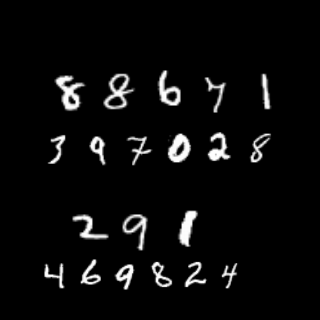 88671
397028
291
469824